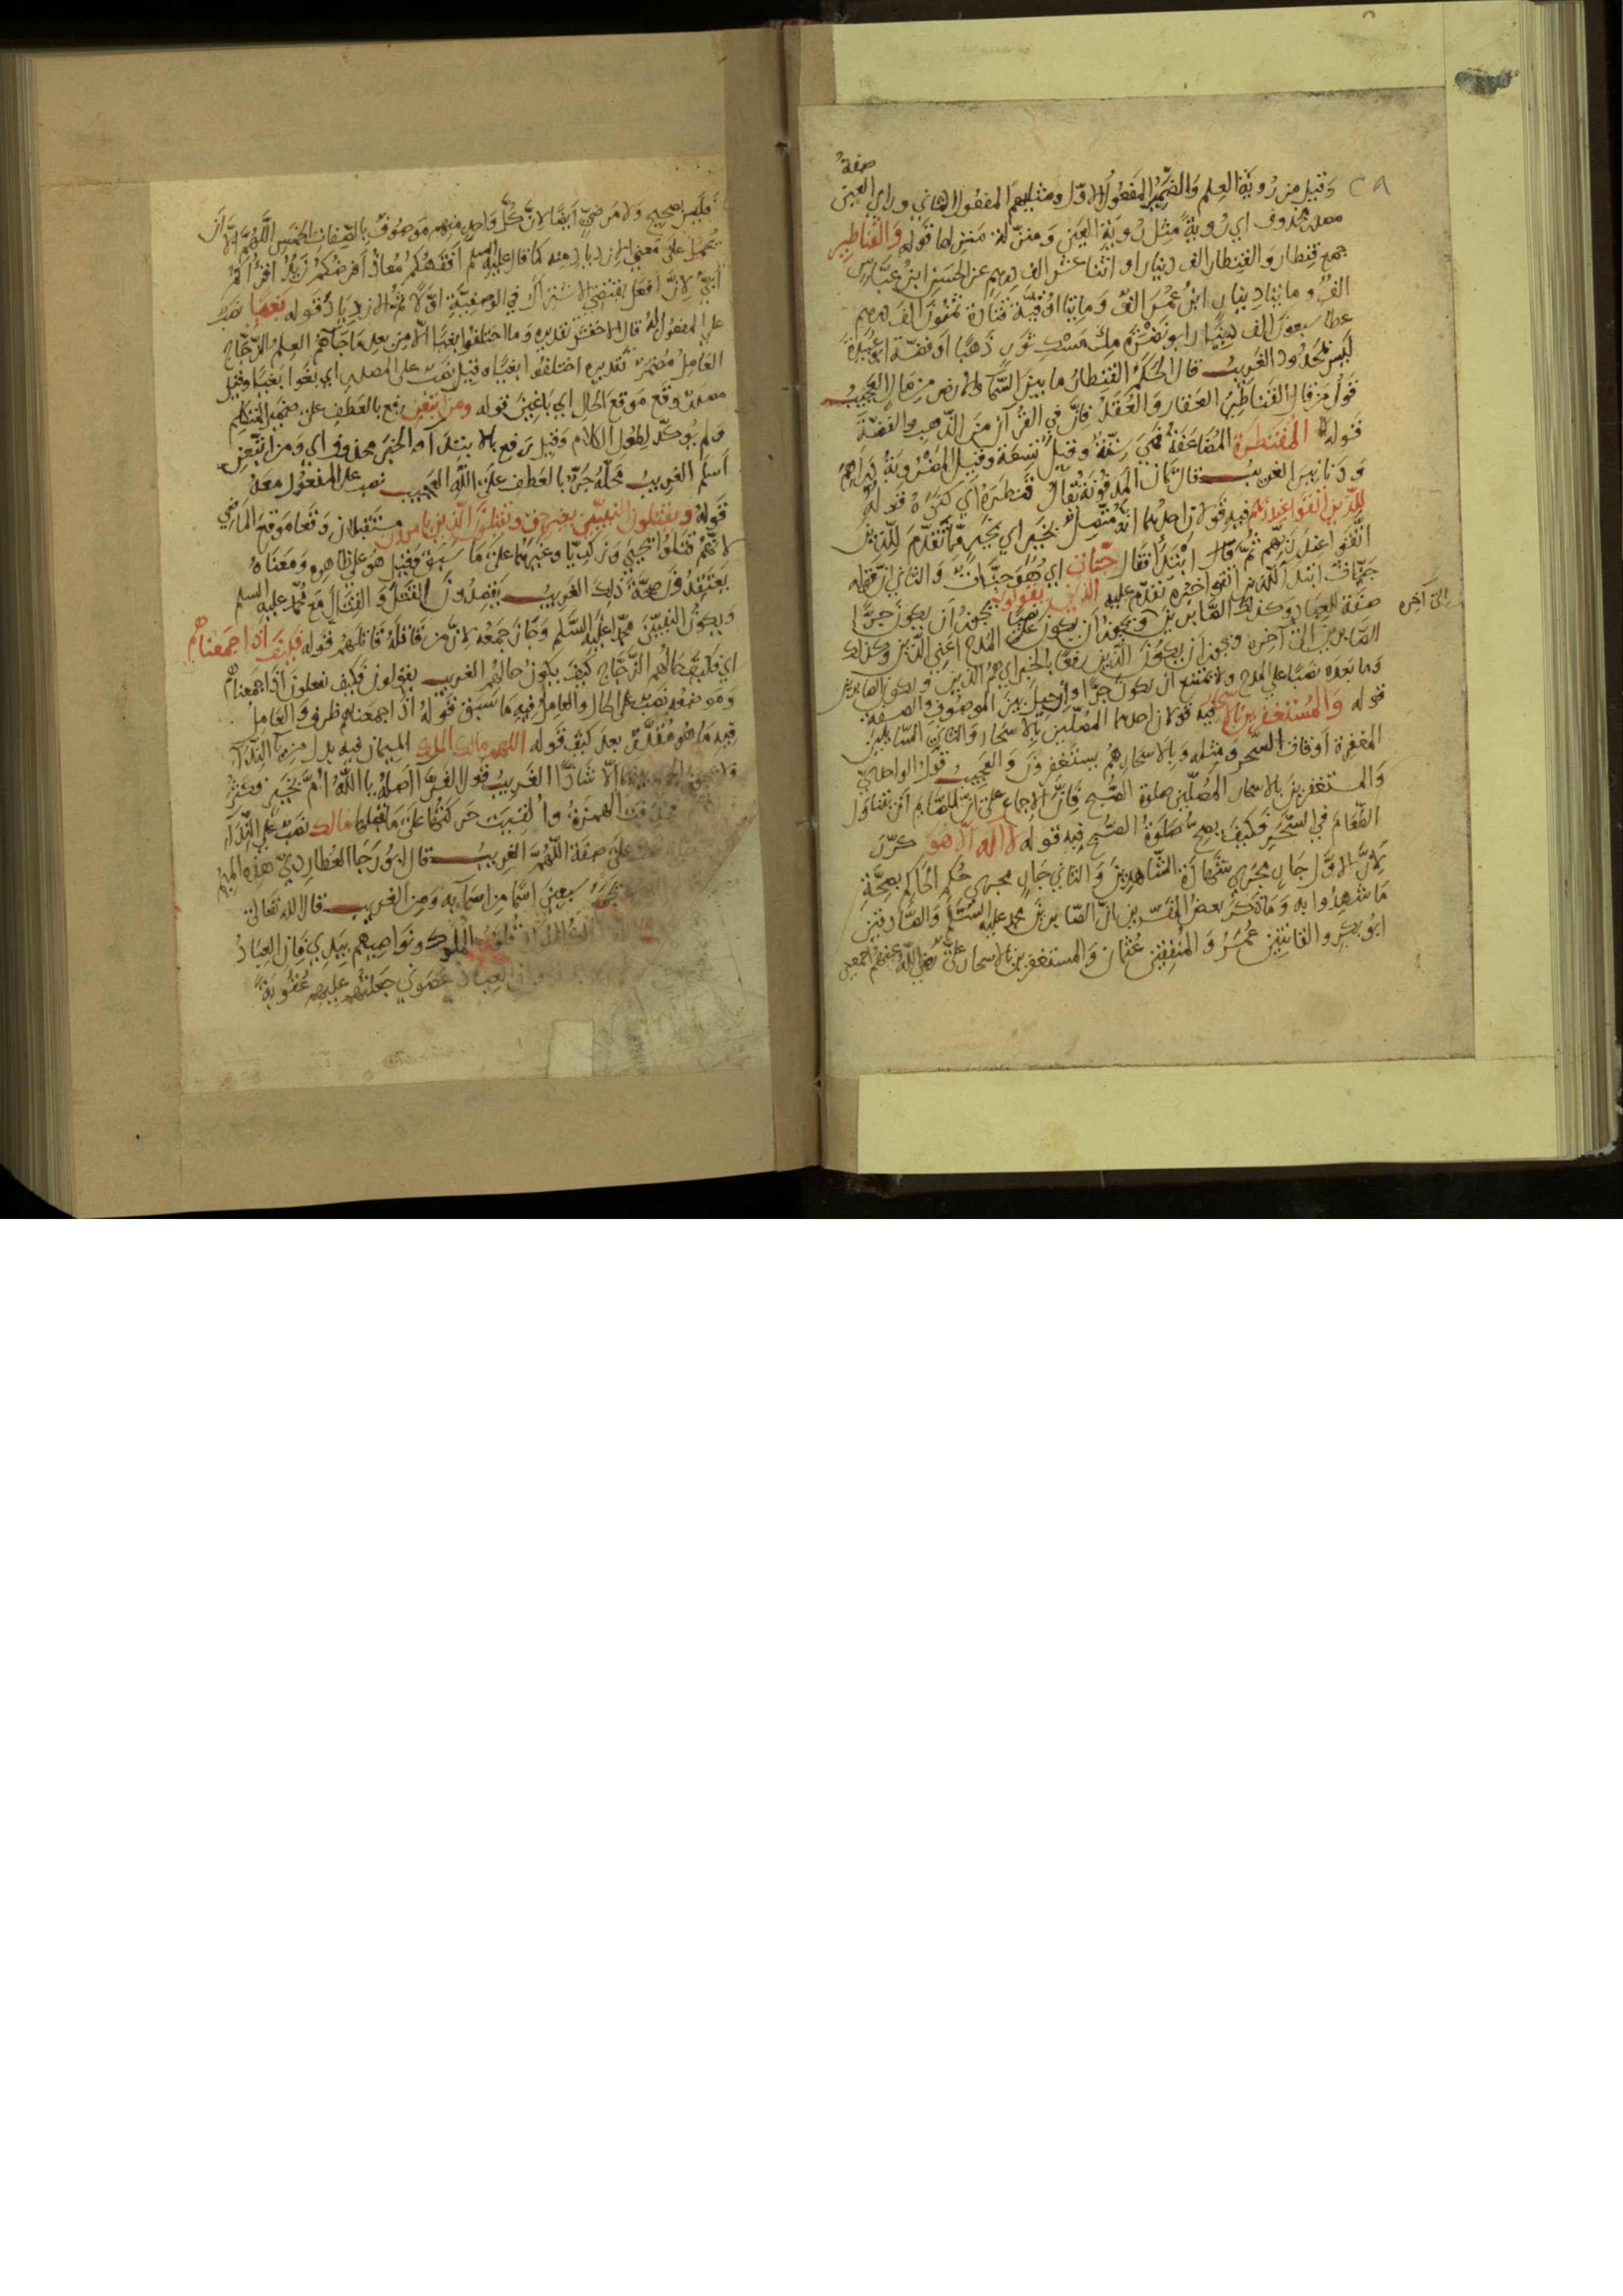 ٢٨
صفة
وقيل من رؤية العلم والضمير المفعول الاول ومثليهم المفعول الثاني وراي العين
مصدر محذوف اي رؤية مثل رؤية العين ومنزلة منزلها قوله والقناطير
جمع قنطار والقنطار الف دينار او اثنا عشر الف درهم عن الحسن ابن عباس
الف ومايتا دينار ابن عمر الف ومايتا اوقية قتادة ثمنون الف درهم
عطا سبعون الف دينارا ابو نضرة ملء مسك ثور ذهبا او فضة ابو عبيدة
ليس بمحدود الغريب قال الحكم القنطار ما بين السماء والارض من مال العجيب
قول من قال القناطير العقار والعقد فان في القرآن من الذهب والفضة
قوله المقنطرة المضاعفة فهي ستة وقيل تسعة وقيل المضروبة دراهم
ودنانير الغريب قال يمان المدفونة يقال قنطره اي كثره قوله
للذين اتقوا عند ربهم فيه قولان احدهما انه متصل بخير اي بخير مما تقدم للذين
اتقوا عند ربهم ثم قال ابتداء فقال جنات اي هو جنات والثاني ان قوله
جنات ابتدا للذين اتقوا خبره تقدم عليه الذين يقولون يجوز ان يكون جرا
صفة للعباد وكذلك الصابرين ويجوز ان يكون نصبا على المدح اعني الذين وكذلك
الى آخره
الصابرين الى آخره ويجوز ان يكون الذين رفعا بالخبر اي هم الذين ويكون الصابرين
وما بعده نصبا على المدح ولا يمتنع ان يكون جرا وان حيل بين الموصوف والصفة
قوله والمستغفرين بالاسحار فيه قولان احدهما المصلين بالاسحار والثاني السايلين
المغفرة اوقات السحر ومثله وبالاسحار هم يستغفرون والعجيب قول الواحدي
والمستغفرين بالاسحار المصلين صلوة الصبح فان الاجماع على ان للصايم ان يتناول
الطعام في السحر فكيف يصح صلوة الصبح فيه قوله لا اله الا هو كرر
لان الاول جار مجرى شهادة الشاهدين والثاني جار مجرى حكم الحاكم بصحة
ما شهدوا به وما ذكر بعض المفسرين ان الصابرين محمد عليه السلم والصادقين
ابو بكر والقانتين عمر والمنفقين عثمان والمستغفرين بالاسحار علي رضي الله عنهم اجمعين
فليس بصحيح ولا مرضي ايضا لان كل واحد منهم موصوف بالصفات الخمس اللهم الا ان
يحمل على معنى ازدياد منه كما قال عليه السلم افقهكم معاذ افرضكم زيد اقرأكم
ابي لان افعل يقتضي الاشتراك في الوصفية اولا ثم الازدياد قوله بغيا نصب
على المفعول له قال الاخفش تقديره وما اختلفوا بغيا الا من بعد ما جاهم العلم الزجاج
العامل مضمر تقديره اختلفوا بغيا وقيل نصب على المصدر اي بغوا بغيا وقيل
مصدر وقع موقع الحال اي باغين قوله ومن اتبعن رفع بالعطف على ضمير المتكلم
ولم يوكد لطول الكلام وقيل رفع بالابتداء والخبر محذوف اي ومن اتبعن
اسلم الغريب محله جر بالعطف على الله العجيب نصب على المفعول معه
قوله ويقتلون النبيين بغير حق ويقتلون الذين يامرون مستقبلان وقعا موقع الماضي
لانهم قتلوا يحيى وزكريا وغيرهما على ما سبق وقيل هو على ظاهره ومعناه
يعتقدون صحة ذلك الغريب يقصدون القتل والقتال مع محمد عليه السلم
ويكون النبيين محمدا عليه السلم وجاز جمعه لان من قاتله قاتلهم قوله فكيف اذا جمعناهم
اي فكيف حالهم الزجاج كيف يكون حالهم الغريب يقولون فكيف يفعلون اذا جمعناهم
وموضعه نصب على الحال والعامل فيه ما سبق قوله اذا جمعناهم ظرف والعامل
فيه ما هو مقدر بعد كيف قوله اللهم مالك الملك الميمان فيه بدل من يا النداء
الا شاذا الغريب قول الفراء اصله يا الله ام بخير فكثر
الهمزة والقيت حركتها على ما قبلها مالك نصب على النداء
على صفة اللهم الغريب قال ابو رجا العطاردي هذه الميم
سبعين اسما من اسمايه ومن الغريب قال الله تعالى
قلوب الملوك ونواصيهم بيدي فان العباد
العباد عصوني جعلتهم عليهم عقوبة